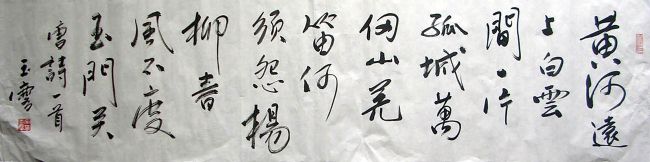 黄河遠
上白雲
間一片
孤城萬
仞山羌
笛何
須怨楊
柳春
風不度
玉門关
唐詩一首